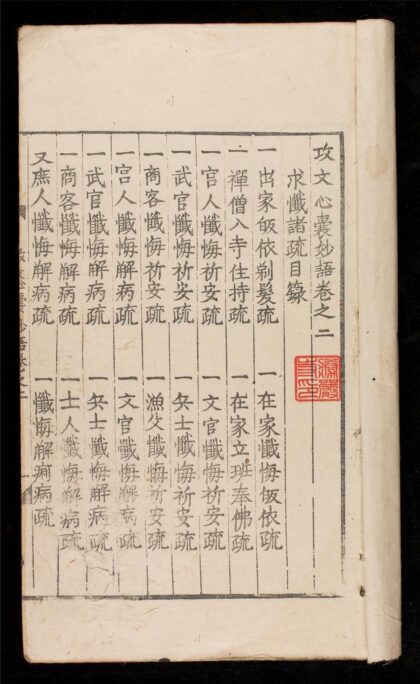 攻文心囊妙語卷之二
求懺諸疏目錄
一出家皈依剃髮疏 一在家懺悔皈依疏
一禪僧入寺住持疏 一在家立班奉佛疏
一宫人懺悔祈安疏 一文官懺悔祈安疏
一武官懺悔祈安疏 一兵士懺悔祈安疏
一商客懺悔祈安疏 一漁父懺悔祈安疏
一宫人懺悔解病疏 一文官懺悔解病疏
一武官懺悔解病疏 一兵士懺悔解病疏
一商客懺悔解病疏 一士人懺悔解病疏
又庶人懺悔解病疏 一懺悔解病疏